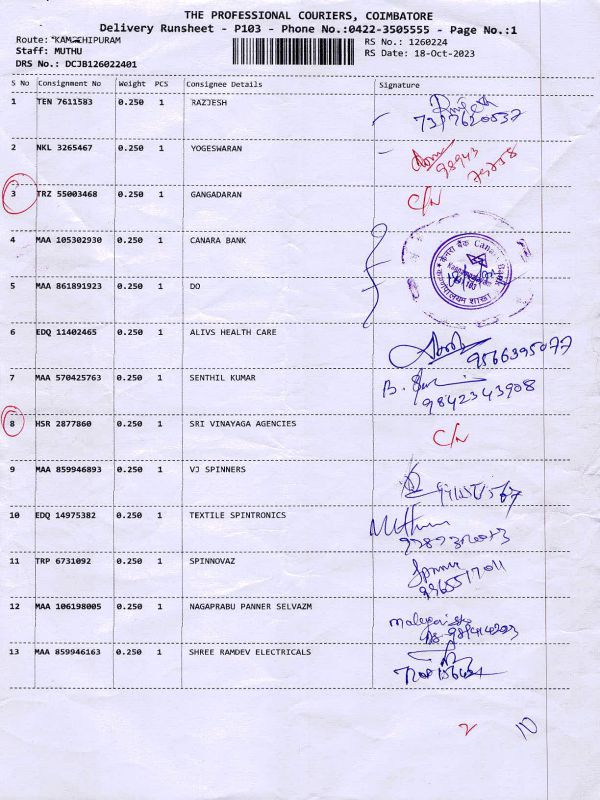 THE PROFESSIONAL COURIERS, COIMBATORE
Delivery Runsheet - P103 - Phone No.:0422-3505555 - Page No.:1
Route: KAMACHIPURAM RS No.: 1260224
Staff: MUTHU RS Date: 18-Oct-2023
DRS No.: DCJB126022401
S No Consignment No Weight PCS Consignee Details Signature
1 TEN 7611583 0.250 1 RAZJESH
7317620537
2 NKL 3265467 0.250 1 YOGESWARAN
98943
75258
3 TRZ 55003468 0.250 1 GANGADARAN C/N
4 MAA 105302930 0.250 1 CANARA BANK
केनरा बैंक Canara Bank
5 MAA 861891923 0.250 1 DO
6 EDQ 11402465 0.250 1 ALIVS HEALTH CARE
9566395077
7 MAA 570425763 0.250 1 SENTHIL KUMAR
9842343908
8 HSR 2877860 0.250 1 SRI VINAYAGA AGENCIES C/N
9 MAA 859946893 0.250 1 VJ SPINNERS
10 EDQ 14975382 0.250 1 TEXTILE SPINTRONICS
11 TRP 6731092 0.250 1 SPINNOVAZ
9365517011
12 MAA 106198005 0.250 1 NAGAPRABU PANNER SELVAZM
13 MAA 859946163 0.250 1 SHREE RAMDEV ELECTRICALS
2 10